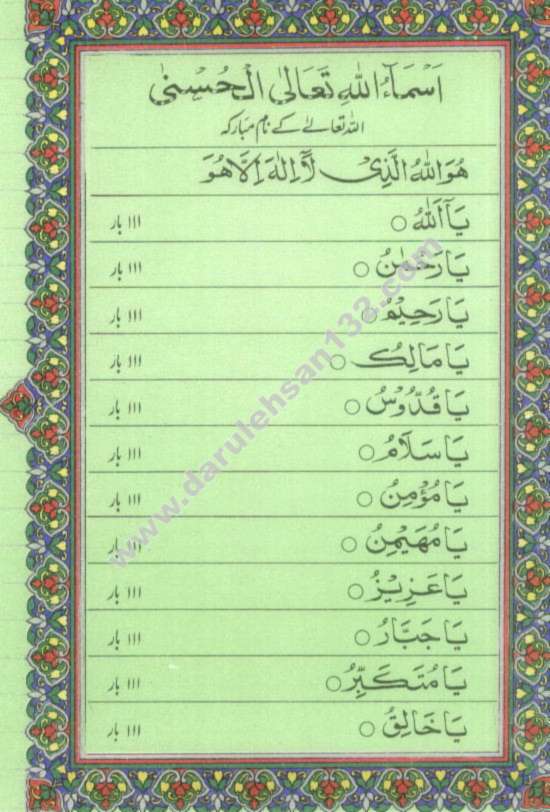 اَسْمَآءُ اللهِ تَعَالٰی الْحُسْنٰی
اللہ تعالےٰ کے نام مبارکہ
هُوَ اللهُ الَّذِیْ لَآ اِلٰهَ اِلَّا هُوَ
یَآ اَللهُ ○ ۱۱۱ بار
یَا رَحْمٰنُ ○ ۱۱۱ بار
یَا رَحِیْمُ ○ ۱۱۱ بار
یَا مَالِكُ ○ ۱۱۱ بار
یَا قُدُّوْسُ ○ ۱۱۱ بار
یَا سَلَامُ ○ ۱۱۱ بار
یَا مُؤْمِنُ ○ ۱۱۱ بار
یَا مُهَیْمِنُ ○ ۱۱۱ بار
یَا عَزِیْزُ ○ ۱۱۱ بار
یَا جَبَّارُ ○ ۱۱۱ بار
یَا مُتَكَبِّرُ ○ ۱۱۱ بار
یَا خَالِقُ ○ ۱۱۱ بار
www.darulehsan132.com